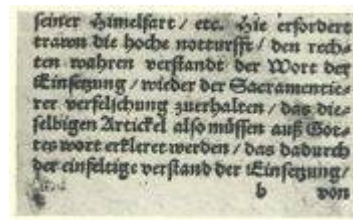 seiner Himelfart / etc. Hie erfordert
trawn die hoche notturfft / den rech⸗
ten wahren verstandt der Wort der
Einsetzung / wieder der Sacramentie⸗
rer verfelschung zuerhalten / das die⸗
selbigen Artickel also müssen auß Got⸗
tes wort erkleret werden / das dadurch
der einfeltige verstand der Einsetzung /
b von